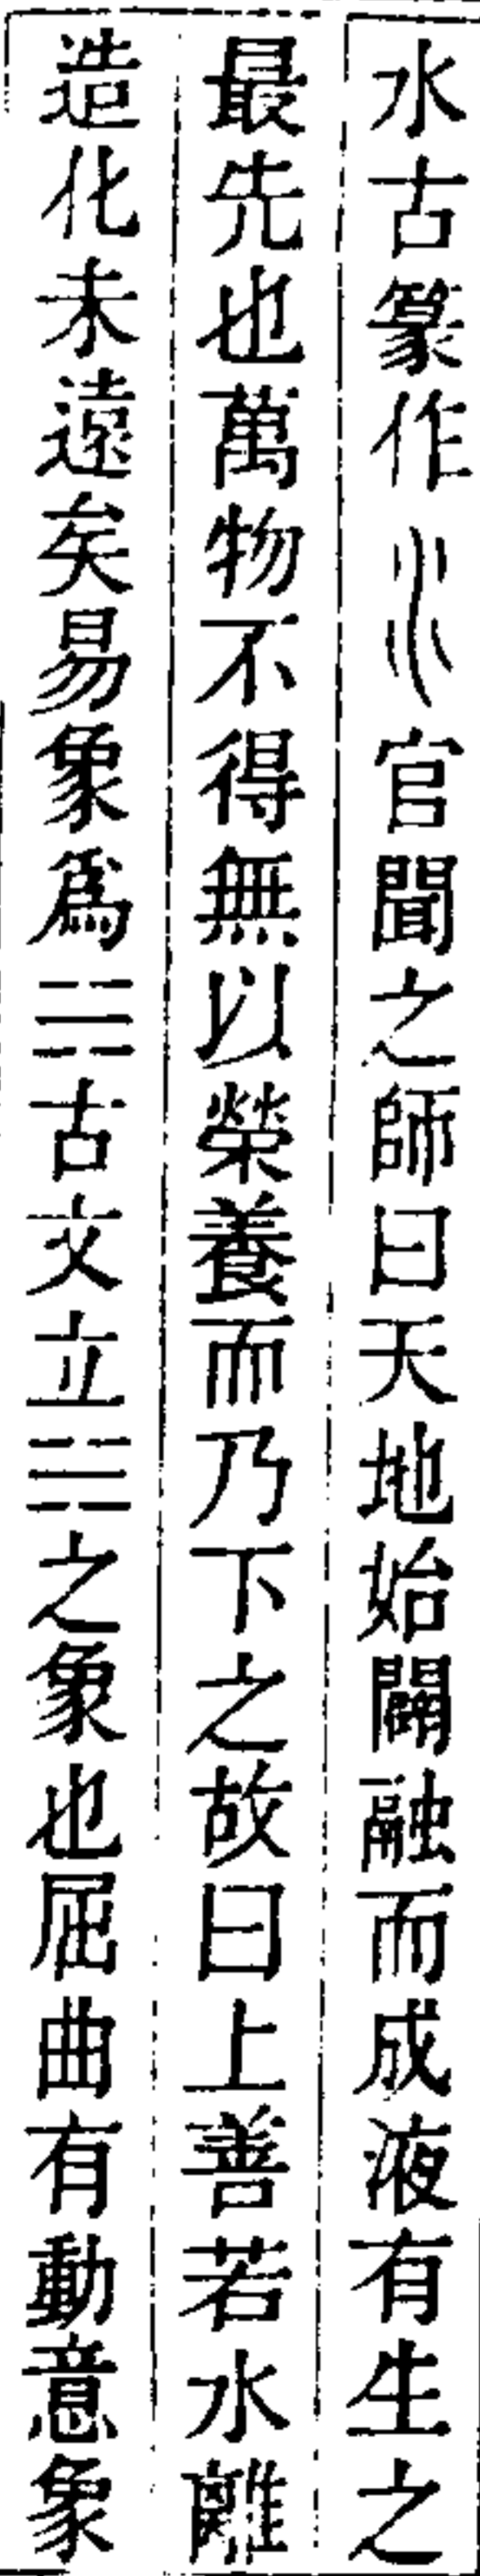 水古篆作官聞之師曰天地始闢融而成液有生之
最先也萬物不得無以榮養而乃下之故曰上善若水離
造化未遠矣易象爲☵古文立☵之象也屈曲有動意象